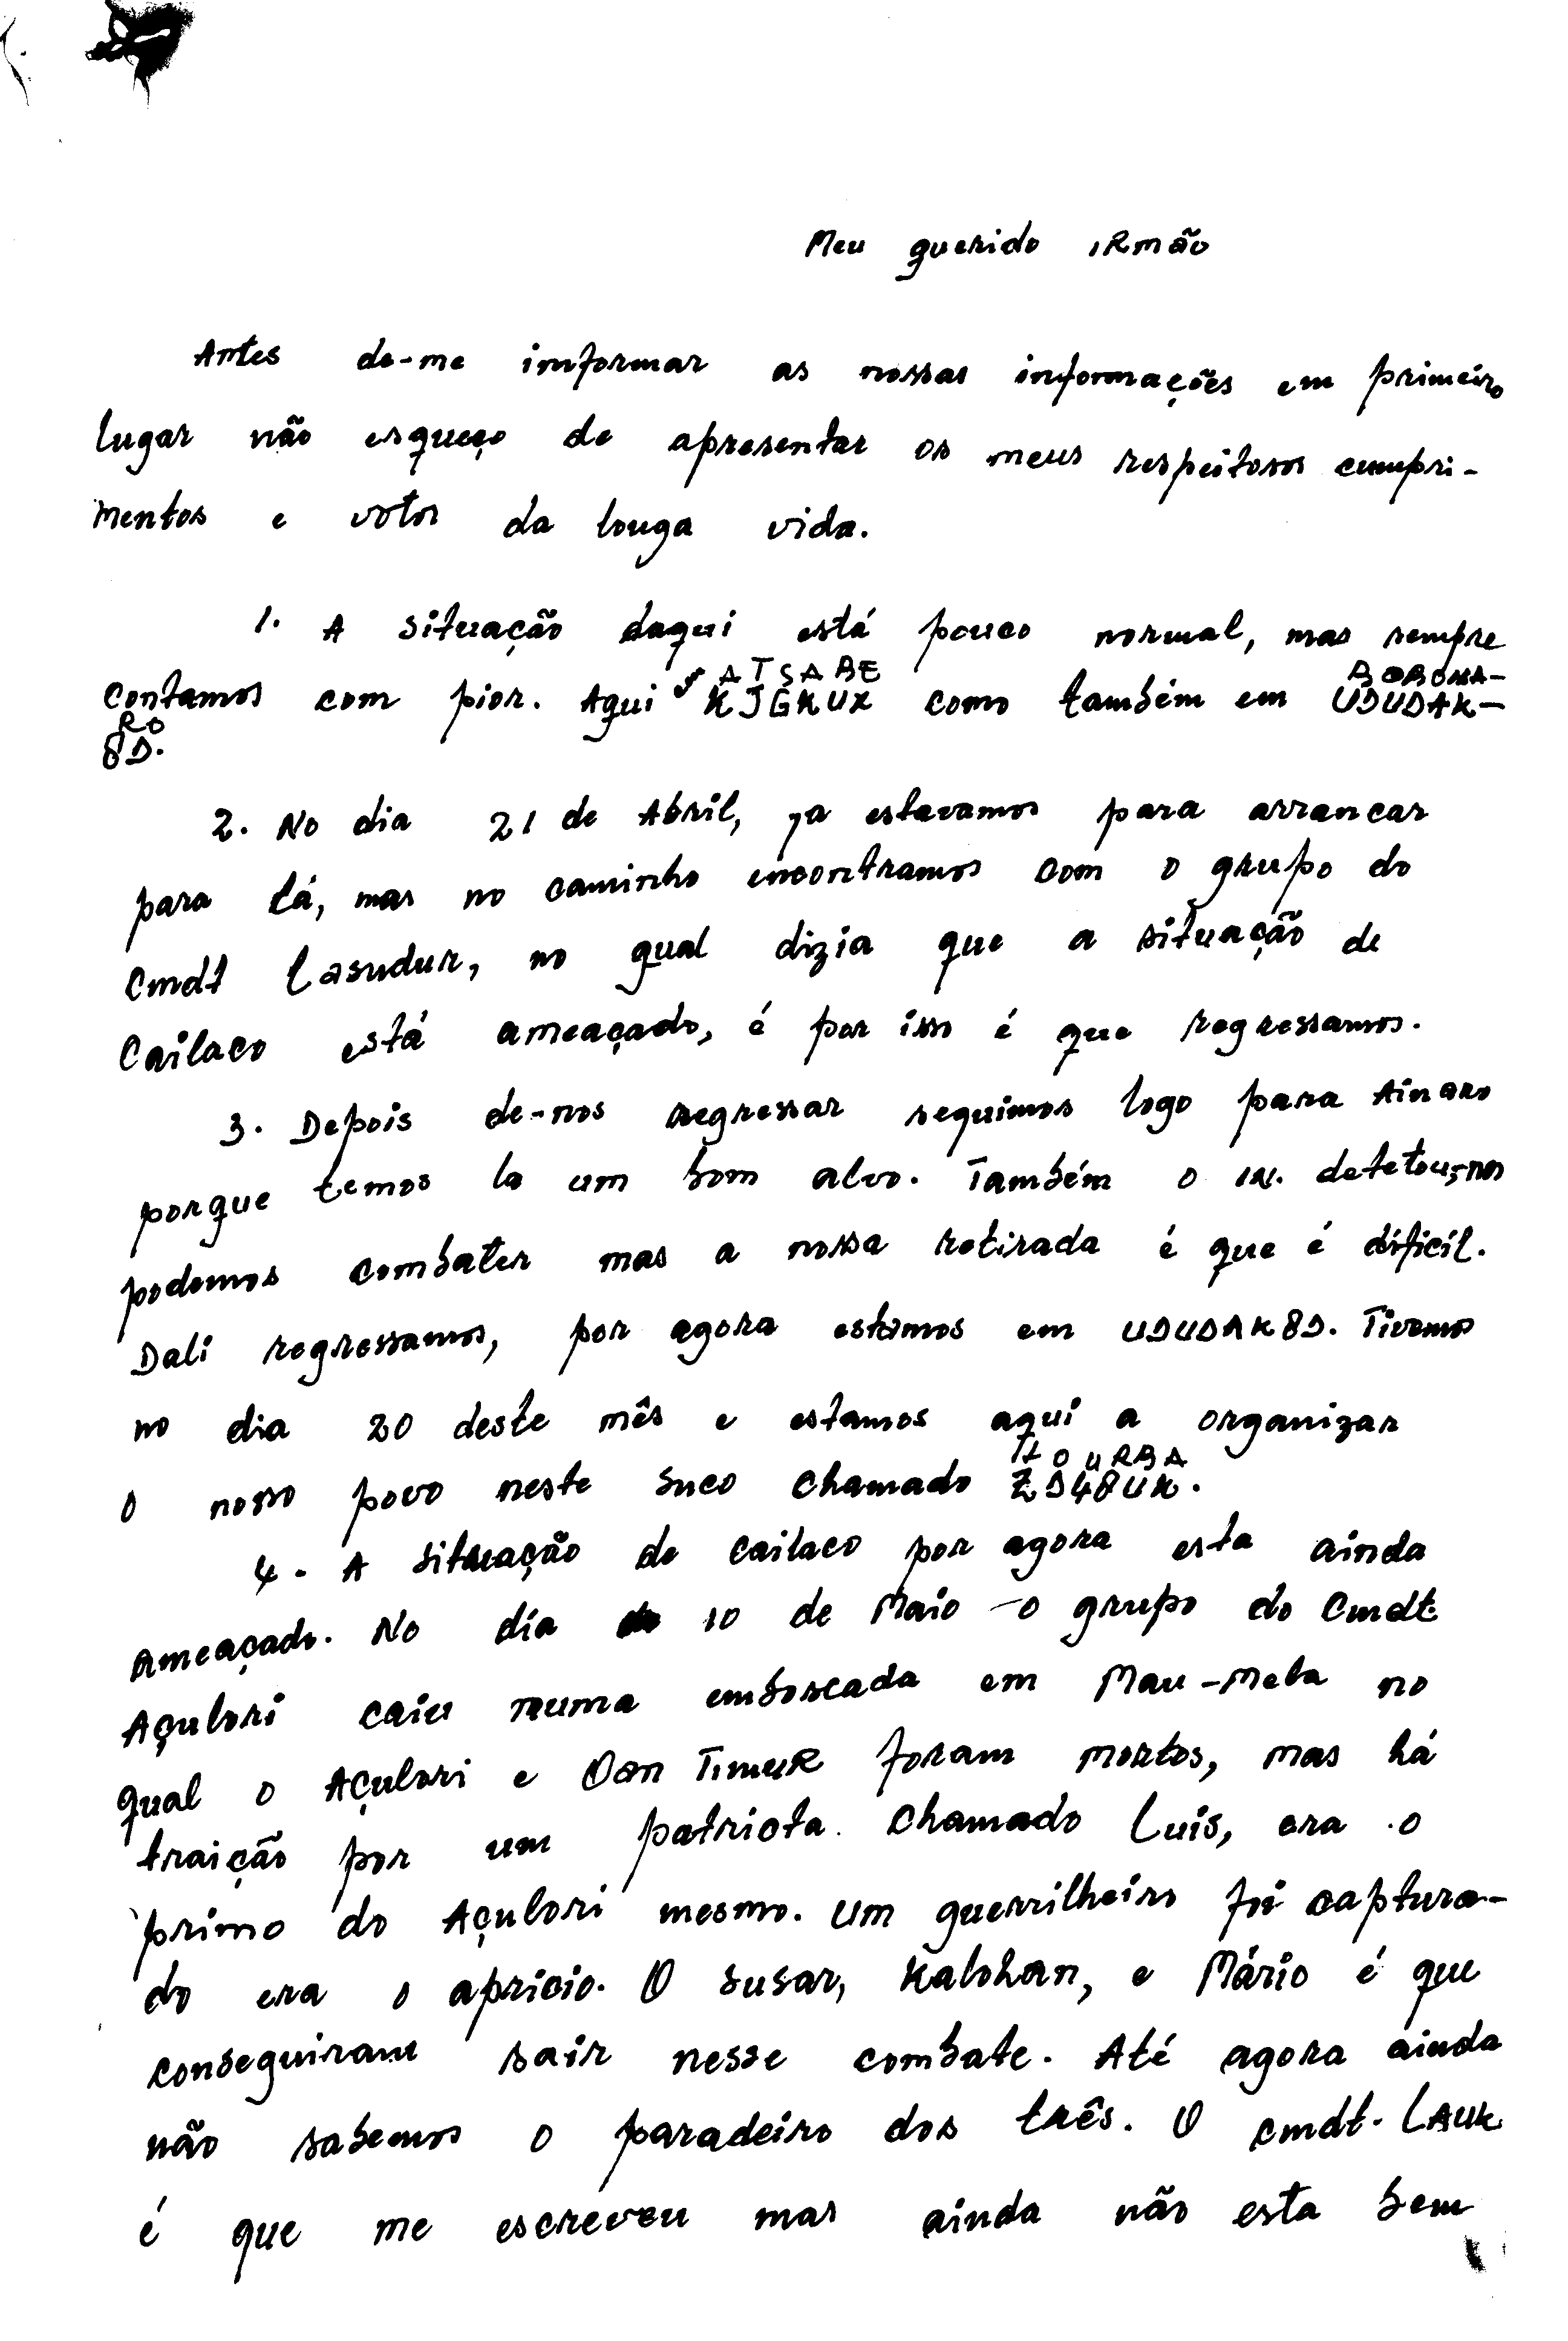 Meu querido IRmão
Antes de-me imformar as nossas informações em primeiro
lugar não esqueço de apresentar os meus respeitosos cumpri-
mentos e votos da louga vida.
1. A situação daqui está pouco normal, mas sempre
ATSABE BOBONA-
contamos com pior. Aqui KJGKUX como também em UDUDAK-
RO
8D.
2. No dia 21 de Abril, ja estavamos para arrancar
para lá, mas no caminho encontramos com o grupo do
Cmdt Lasudur, no qual dizia que a situação de
Cailaco está ameaçado, é por isso é que regressamos.
3. Depois de-nos regressar seguimos logo para Ainaro
porque temos la um bom alvo. Também o in. detetou-nos
podemos combater mas a nossa retirada é que é díficil.
Dali regressamos, por agora estamos em UDUDAK8D. Tivemos
no dia 20 deste mês e estamos aqui a organizar
HOURBA
o nosso povo neste suco chamado ZD48UK.
4. A situação de cailaco por agora esta ainda
ameaçado. No día 10 de Maio o grupo do Cmdt
Açulori caiu numa emboscada em Mau-Meta no
qual o Açulori e Oan TimuR foram mortos, mas há
traição por um patriota chamado Luis, era o
primo do Açulori mesmo. Um guerrilheiro foi captura-
do era o apricio. O Susar, Kalohan, e Mário é que
conseguiram sair nesse combate. Até agora ainda
não sabemos o paradeiro dos três. O cmdt. LAUK
é que me escreveu mas ainda não esta bem